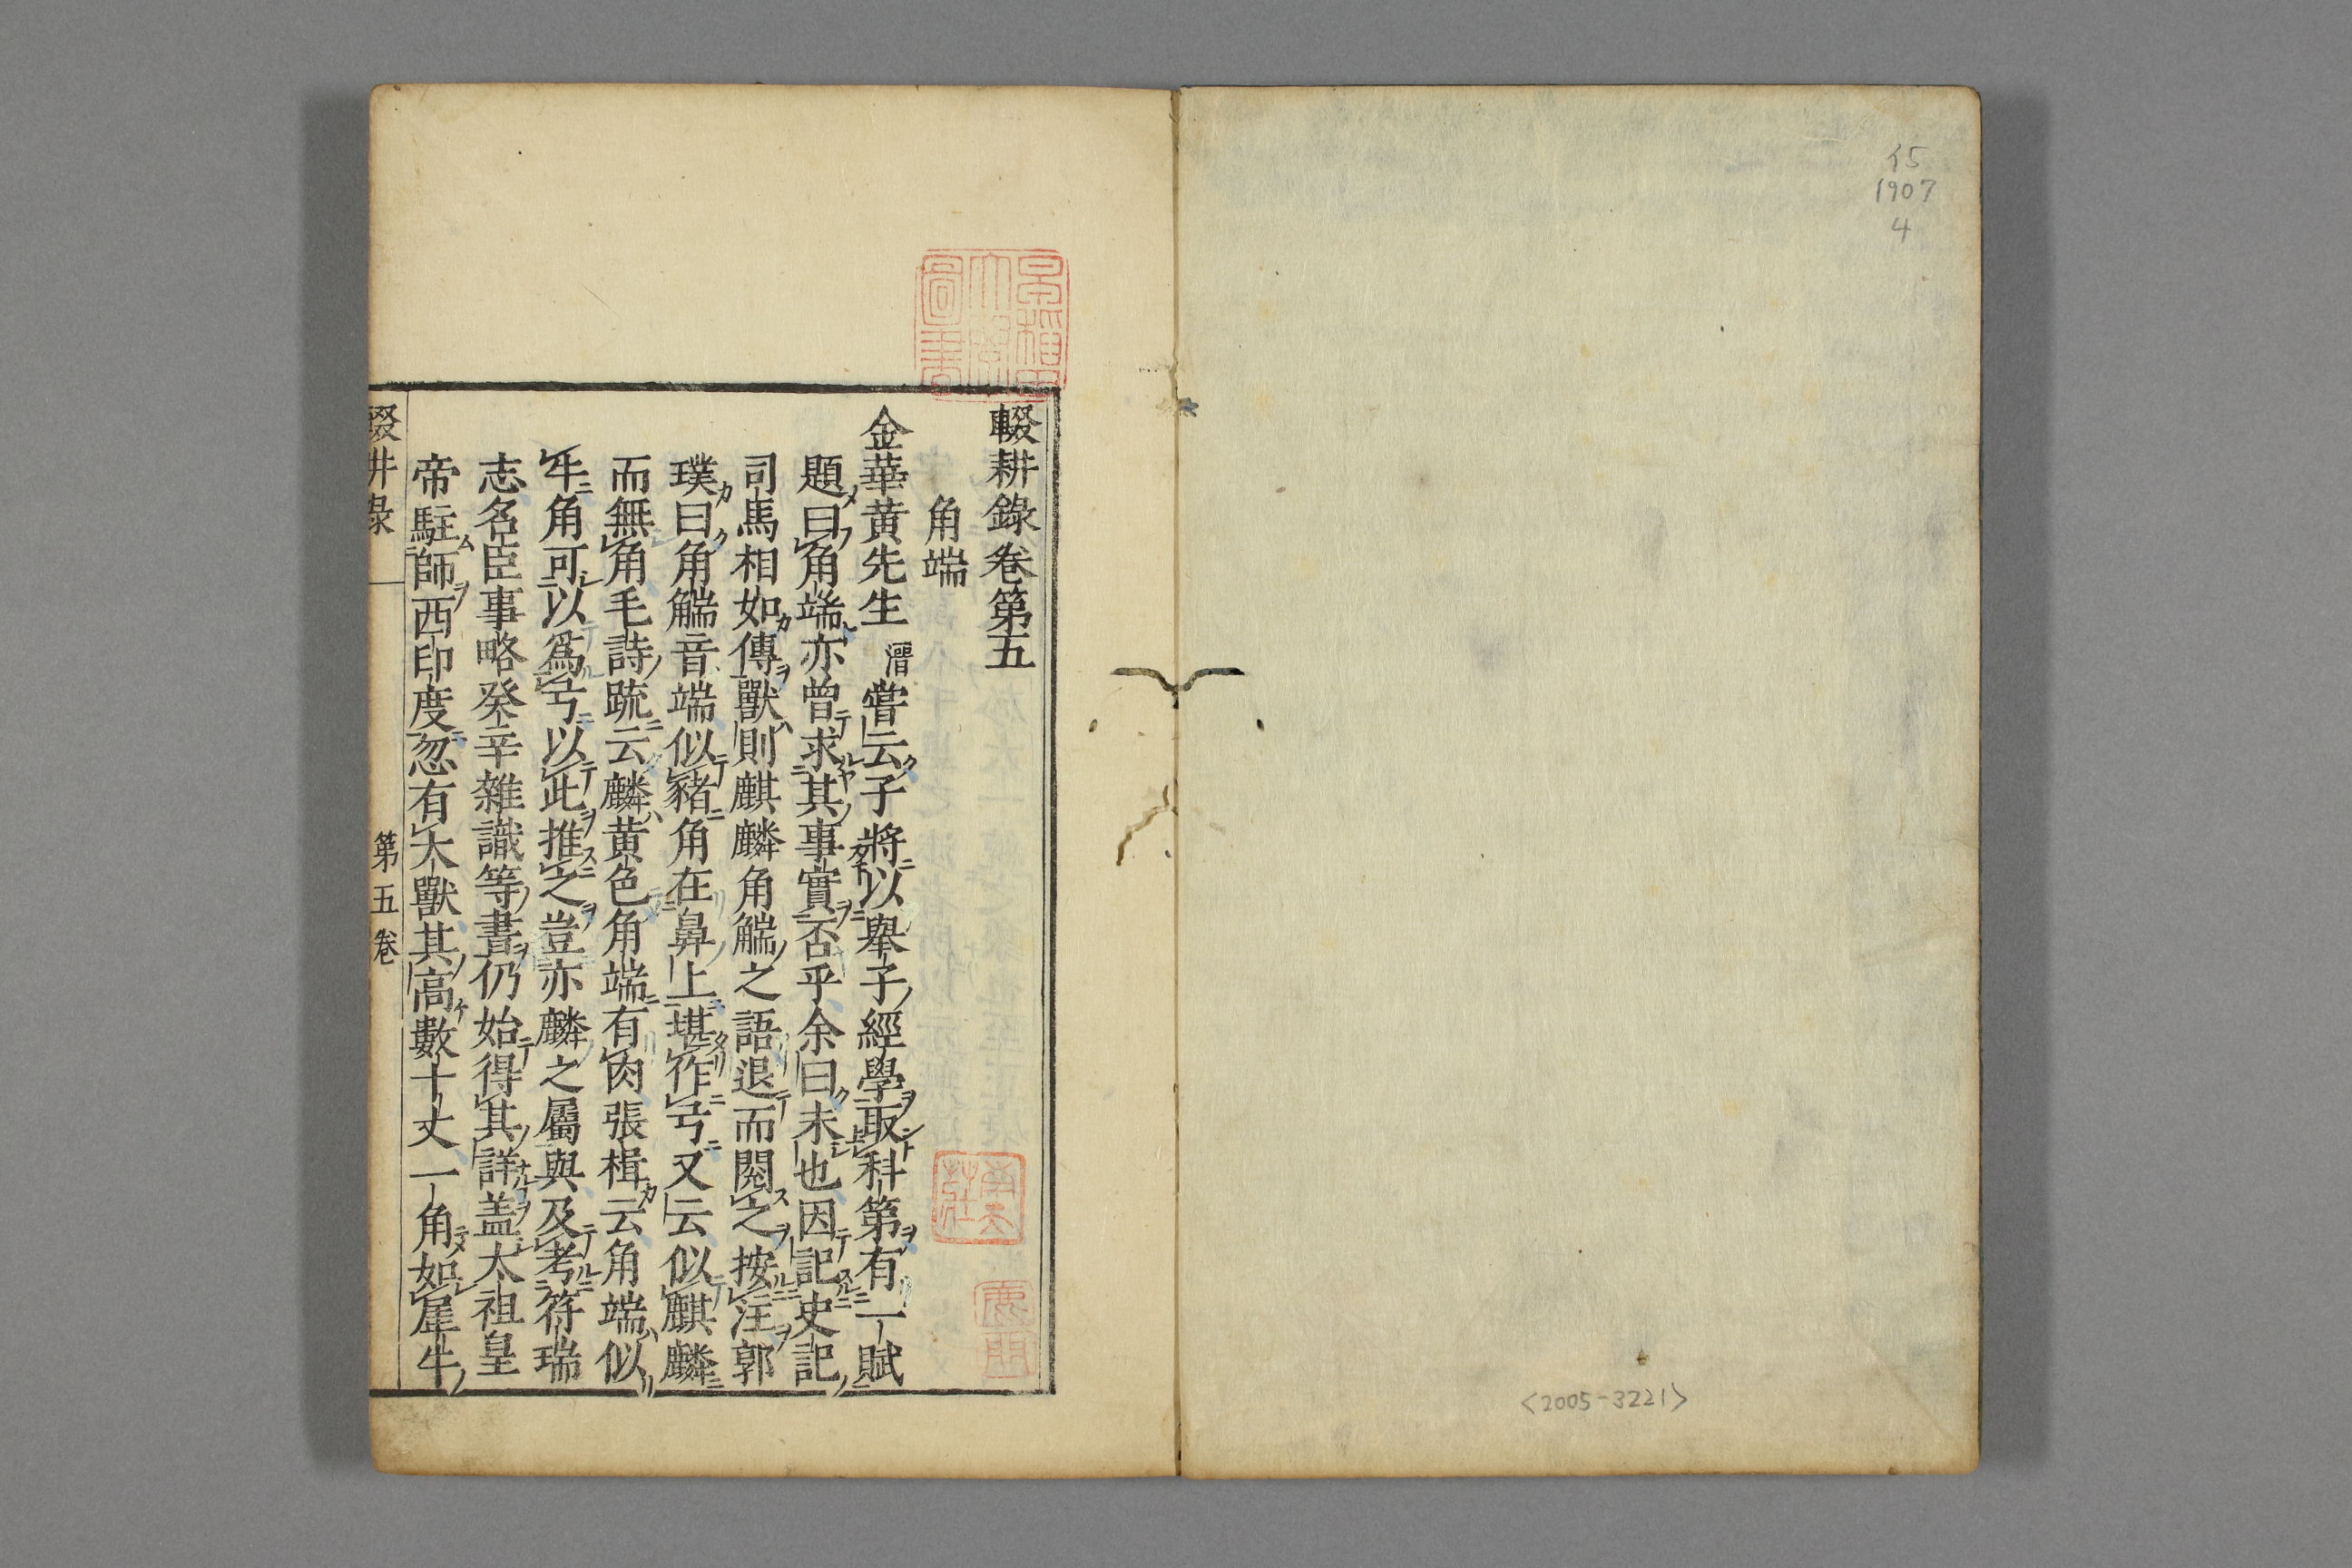 イ5
1907
4
<2005-3221>
輟耕錄卷第五
角端
金華黄先生溍嘗云子將以舉子經學取科第有一賦
題曰角端亦曾求其事實否乎余曰未也因記史記
司馬相如傳獸則麒麟角觿之語退而閱之按注郭
璞曰角觿音端似豬角在鼻上堪作弓又云似麒麟
而無角毛詩疏云麟黄色角端有肉張楫云角端似
牛角可以爲弓以此推之豈亦麟之屬與及考符瑞
志名臣事略癸辛雜識等書仍始得其詳盖太祖皇
帝駐師西印度忽有大獸其高數十丈一角如犀牛
輟耕录
第五卷
早稲田大學圖書